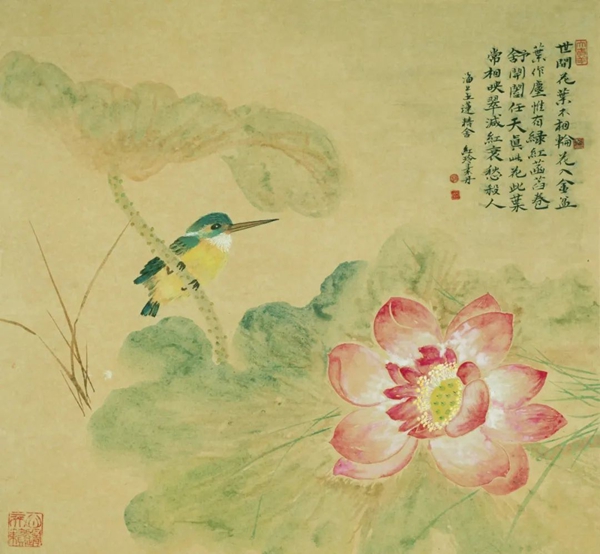 世間花葉不相輪花入金盆
葉作塵惟有緑紅菡萏卷
舒開闔任天真此花此葉
常相映翠減紅衰愁殺人
海上蓮精舍